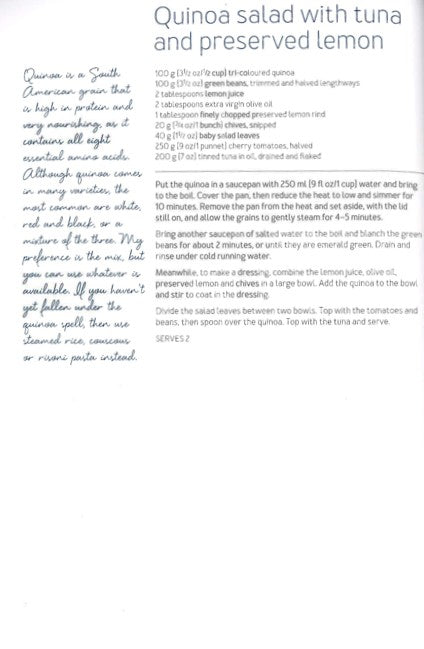 Quinoa salad with tuna
and preserved lemon
Quinoa is a South
American grain that
is high in protein and
very nourishing, as it
contains all eight
essential amino acids.
Although quinoa comes
in many varieties, the
most common are white,
red and black, or a
mixture of the three. My
preference is the mix, but
you can use whatever is
available. If you haven't
yet fallen under the
quinoa spell, then use
steamed rice, couscous
or risoni pasta instead.
100 g (3½ oz/½ cup) tri-coloured quinoa
100 g (3½ oz) green beans, trimmed and halved lengthways
2 tablespoons lemon juice
2 tablespoons extra virgin olive oil
1 tablespoon finely chopped preserved lemon rind
20 g (¾ oz/1 bunch) chives, snipped
40 g (1½ oz) baby salad leaves
250 g (9 oz/1 punnet) cherry tomatoes, halved
200 g (7 oz) tinned tuna in oil, drained and flaked
Put the quinoa in a saucepan with 250 ml (9 fl oz/1 cup) water and bring
to the boil. Cover the pan, then reduce the heat to low and simmer for
10 minutes. Remove the pan from the heat and set aside, with the lid
still on, and allow the grains to gently steam for 4–5 minutes.
Bring another saucepan of salted water to the boil and blanch the green
beans for about 2 minutes, or until they are emerald green. Drain and
rinse under cold running water.
Meanwhile, to make a dressing, combine the lemon juice, olive oil,
preserved lemon and chives in a large bowl. Add the quinoa to the bowl
and stir to coat in the dressing.
Divide the salad leaves between two bowls. Top with the tomatoes and
beans, then spoon over the quinoa. Top with the tuna and serve.
SERVES 2